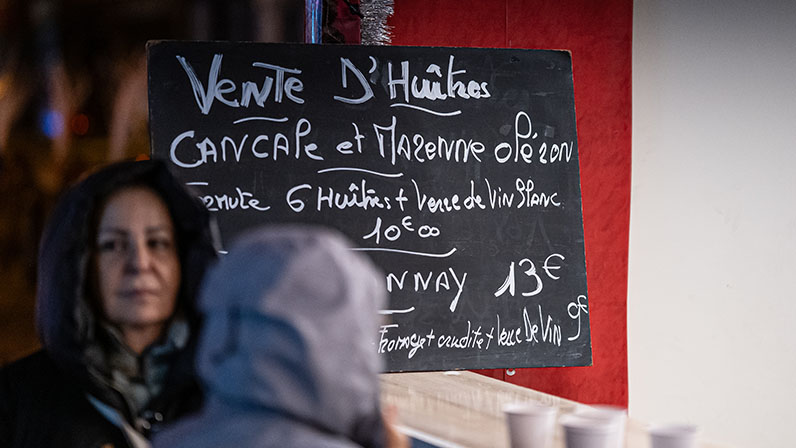 Vente D'Huîtres
CANCALE et MARENNE OléRON
6 Huîtres + Verre de Vin Blanc
10€00
NNAY 13€
Fromage + crudité + Verre De Vin 9€